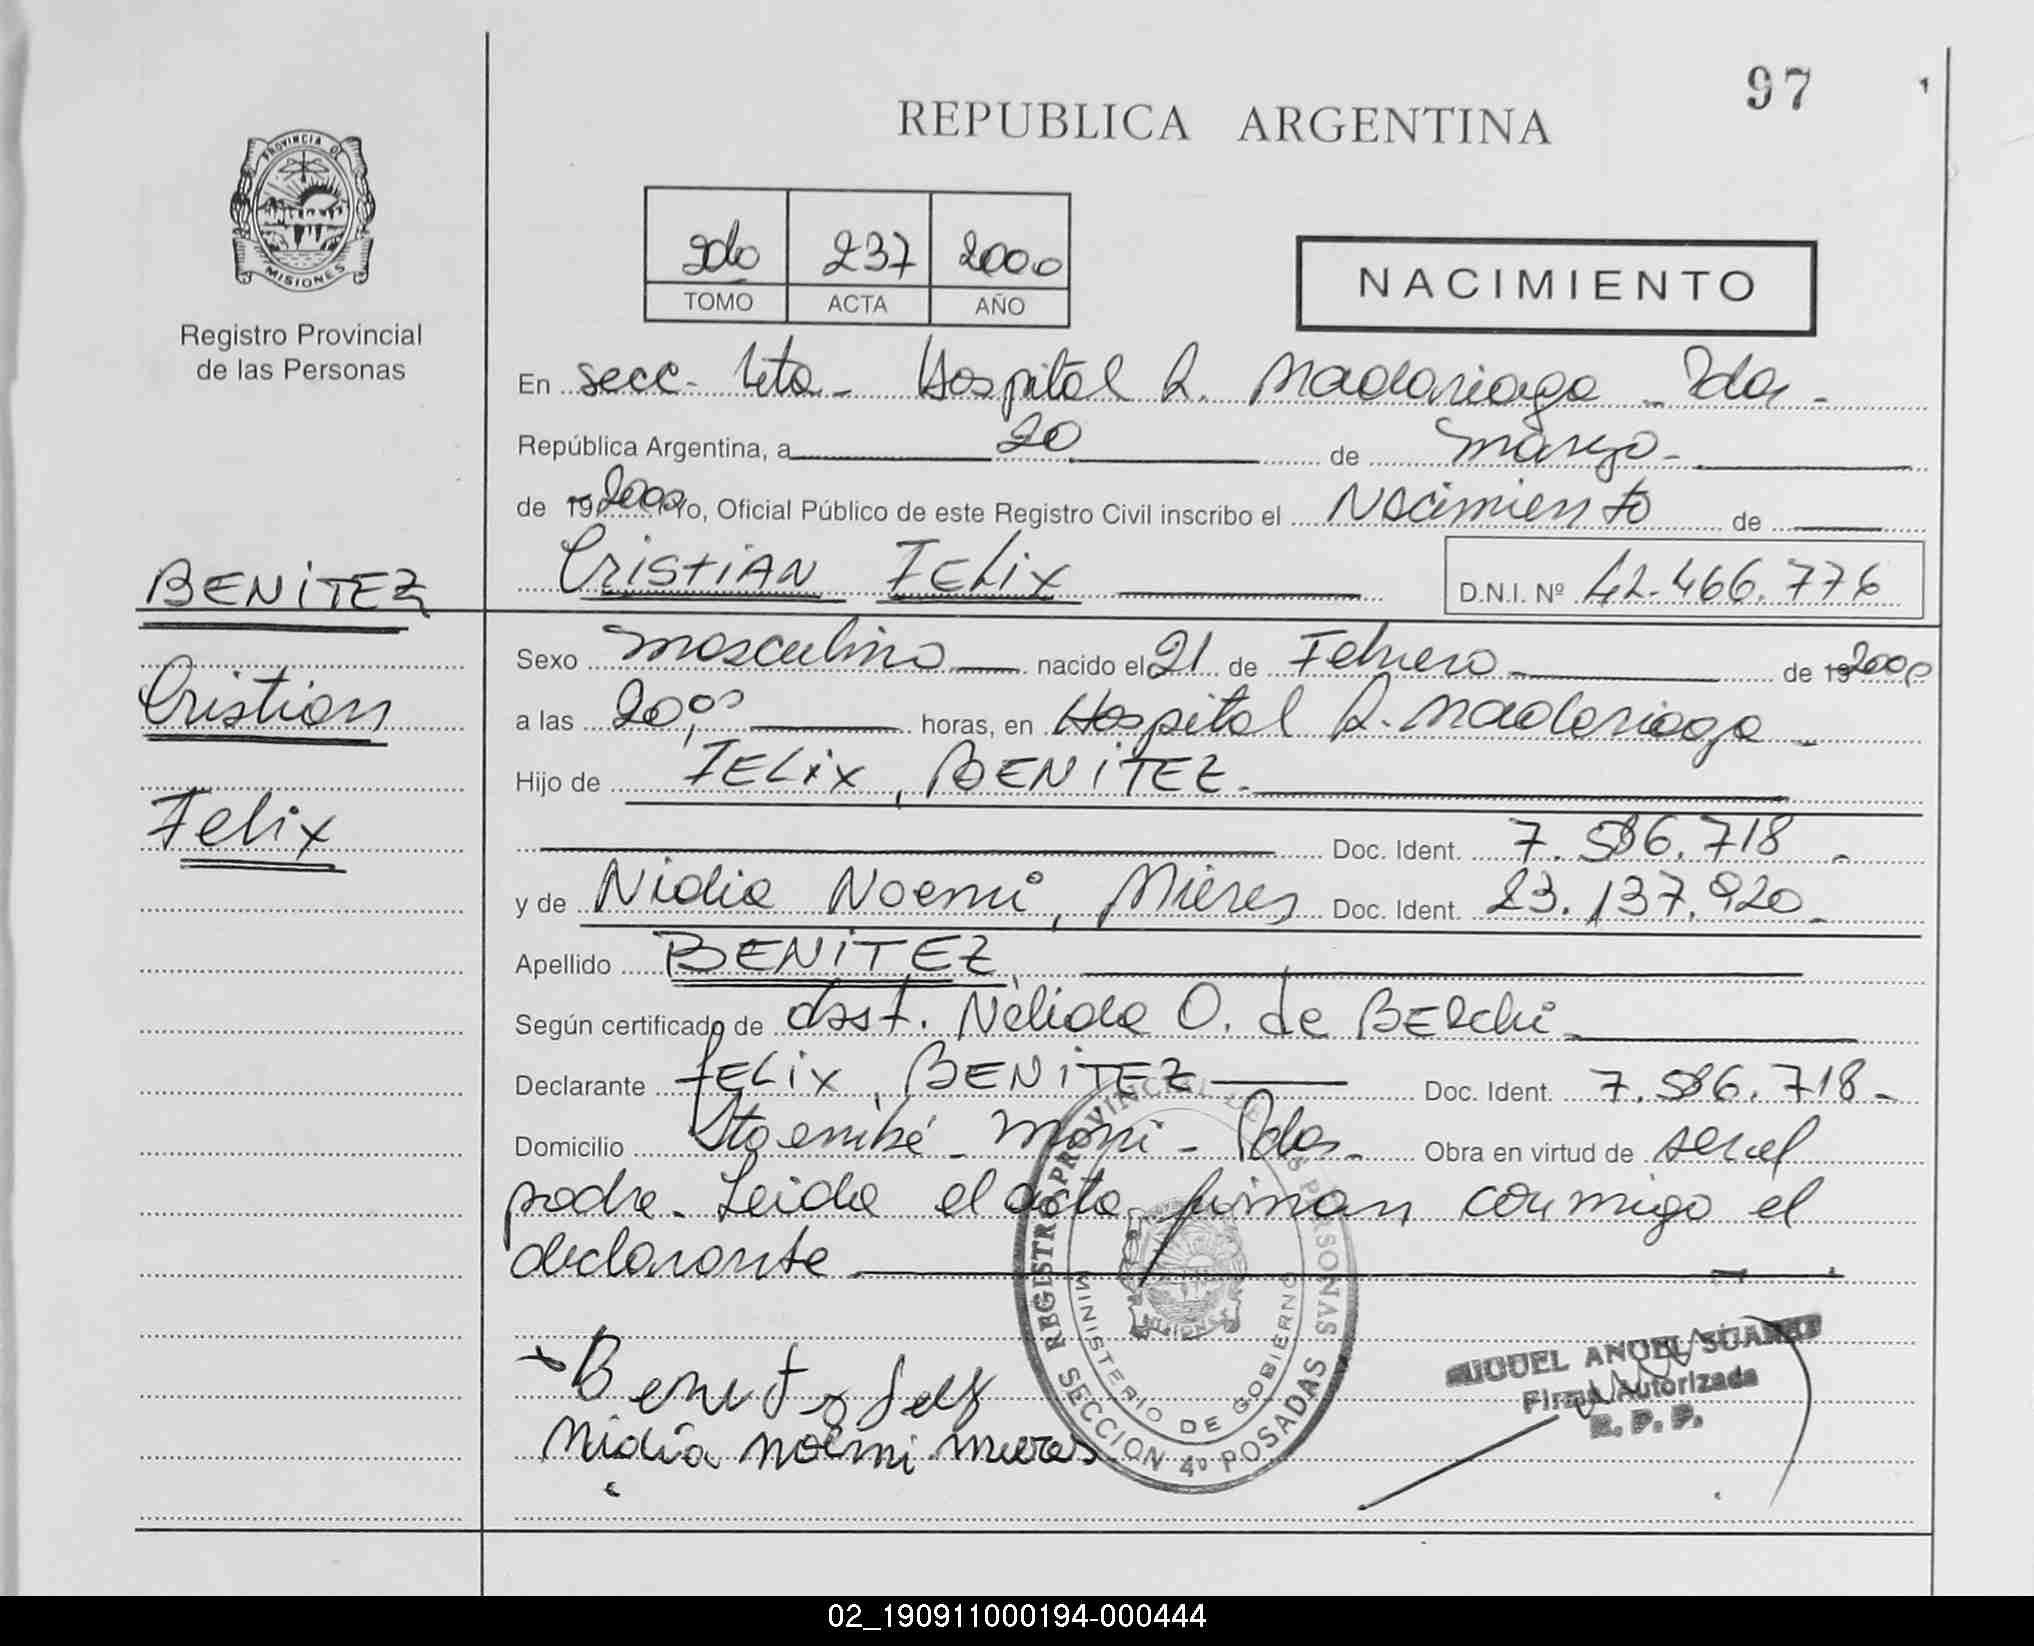 97
1
REPUBLICA ARGENTINA
PROVINCIA D
MISIONES
Registro Provincial
de las Personas
2do 237 2000
TOMO ACTA AÑO
NACIMIENTO
En secc. 4ta - Hospital R. Madariaga - Pdas -
República Argentina, a 20 de marzo -
de 19 2000 Yo, Oficial Público de este Registro Civil inscribo el Nacimiento de
CRISTIAN FELIX D.N.I. Nº 42.466.776
BENITEZ
Cristian
Felix
Sexo masculino nacido el 21 de Febrero de 19 2000
a las 20,00 horas, en Hospital R. Madariaga -
Hijo de FELIX, BENITEZ -
Doc. Ident. 7.586.718 -
y de Nidia Noemi, Mieres Doc. Ident. 23.137.920 -
Apellido BENITEZ
Según certificado de obst. Nélida O. de BERchi -
Declarante FELIX, BENITEZ Doc. Ident. 7.586.718 -
Domicilio Pdas - Obra en virtud de ser el
padre - Leida el acta, firman conmigo el
declarante
Nidia noemi mieres
REGISTRO PROVINCIAL DE LAS PERSONAS
MINISTERIO DE GOBIERNO
SECCION 4º POSADAS
MIGUEL ANGEL SUAREZ
Firma Autorizada
R. P. P.
02_190911000194-000444